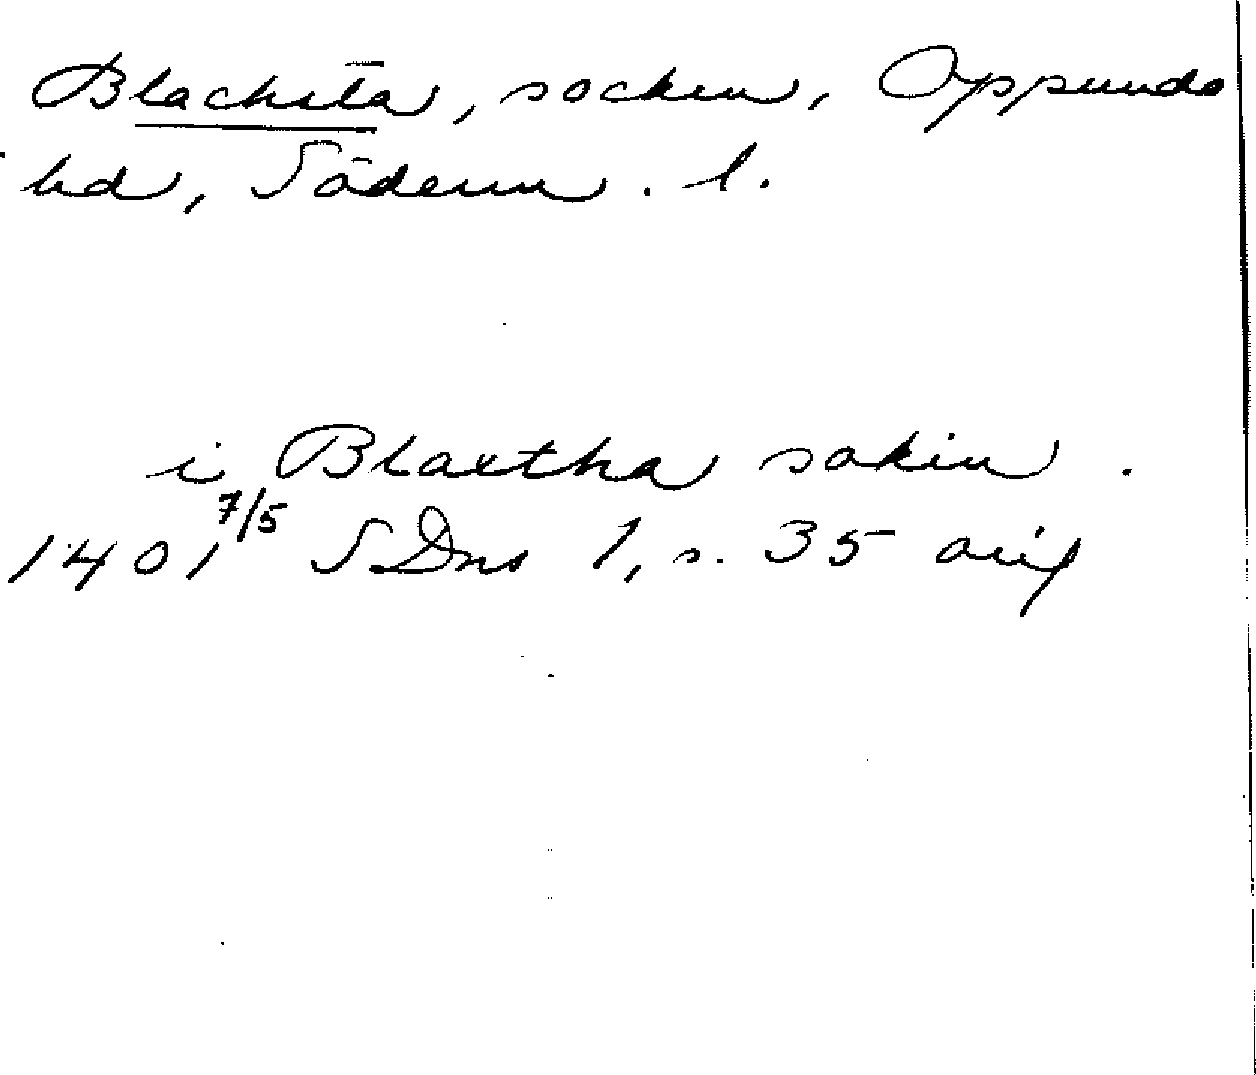 Blacksta, socken, Oppunda
hd, Söderm. l.
i Blaxtha sokin.
1401 7/5 SDns 1, s. 35 orig